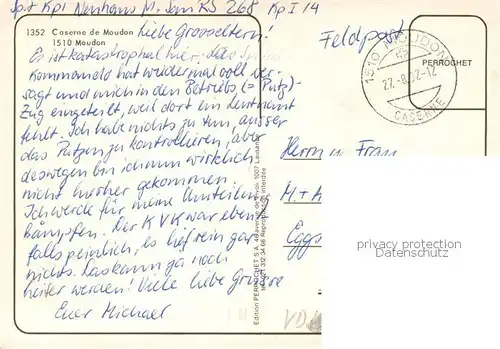 Spit Kpl Neuhaus M. San RS 268 Kp I 14
1352 Caserne de Moudon
1510 Moudon
Liebe Grosseltern!
Es ist katastrophal hier; das
Kommando hat wiedermal voll ver-
sagt und mich in den Betriebs (= Putz)-
Zug eingeteilt, weil dort ein Leutnant
fehlt. Ich habe nichts zu tun, ausser
das Putzen zu kontrollieren, aber
deswegen bin ich nun wirklich
nicht hierher gekommen.
Ich werde für meine Umteilung
kämpfen. Der KVK war eben-
falls peinlich, es lief rein gar
nichts. Das kann ja noch
heiter werden! Viele liebe Grüsse
Euer Michael
Edition PERROCHET S.A. 1007 Lausanne
Reproduction interdite
Feldpost
1510 MOUDON
27.-8.22-12
CASERNE
PERROCHET
Herrn u. Frau
M. +
Eggs
privacy protection
Datenschutz